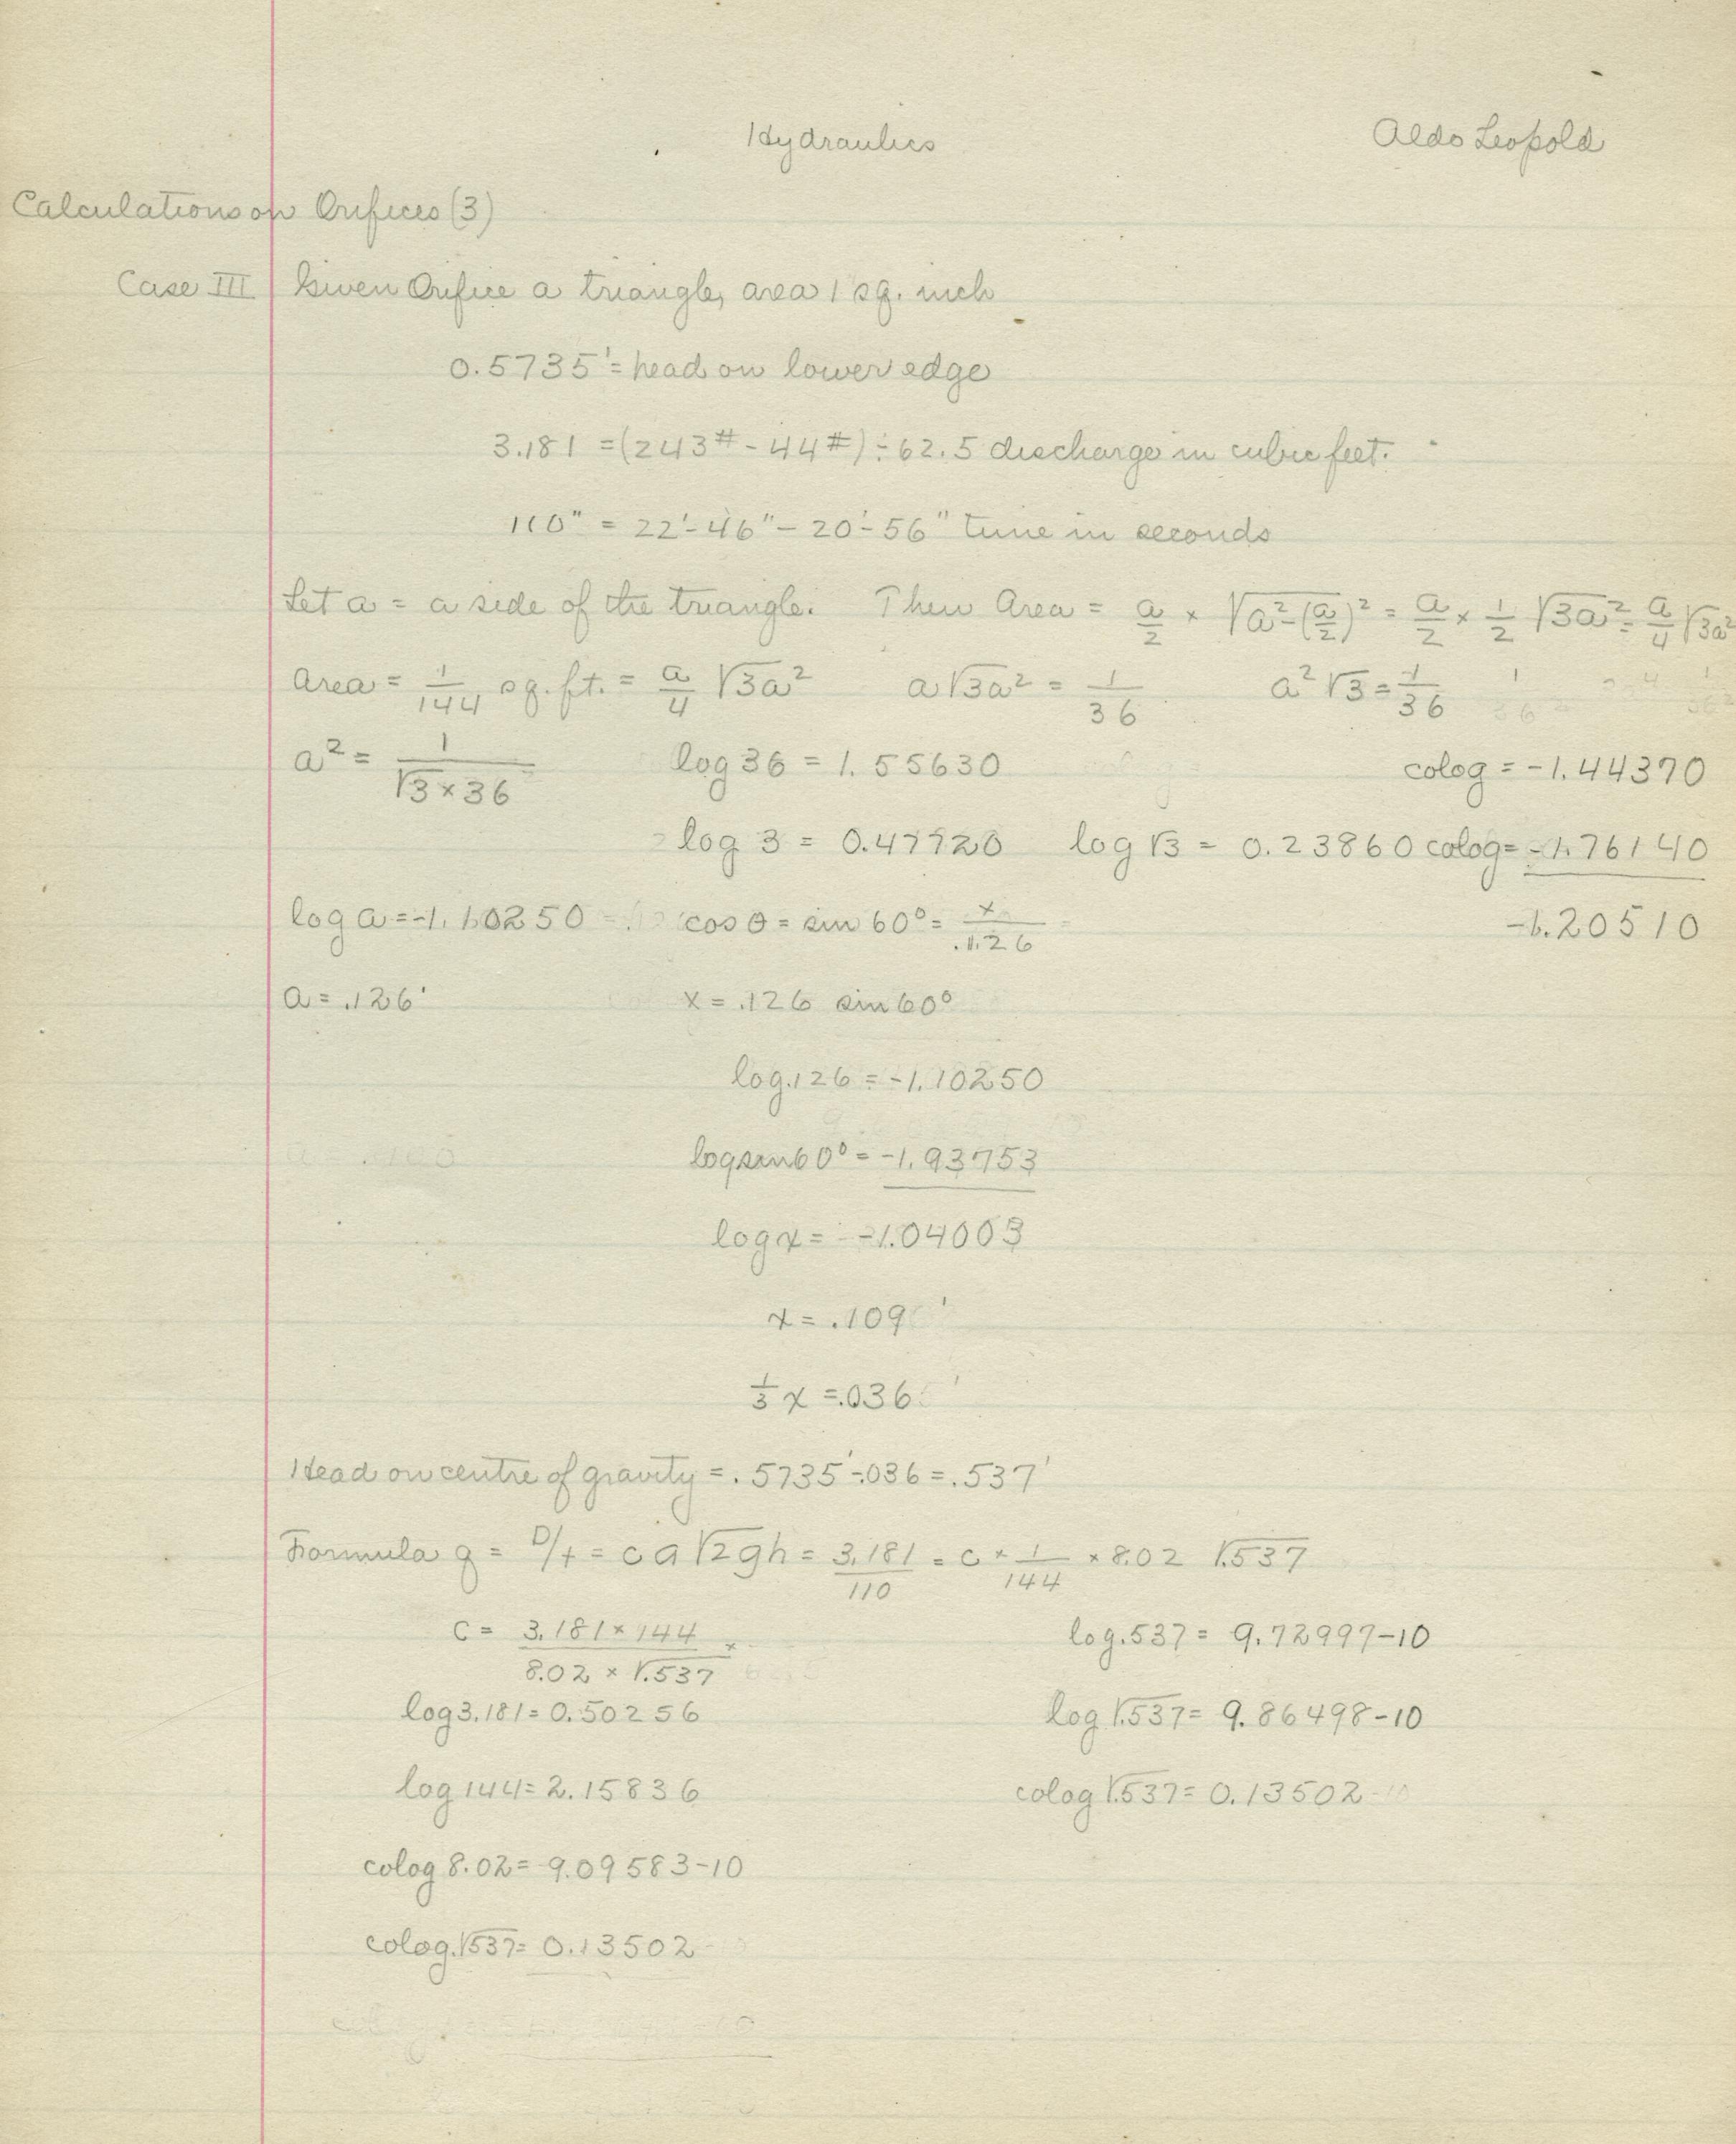 Hydraulics Aldo Leopold
Calculations on Orifices (3)
Case III Given Orifice a triangle, area 1 sq. inch
0.5735' = head on lower edge
3.181 = (243# - 44#) ÷ 62.5 discharge in cubic feet.
110" = 22'-46" - 20'-56" time in seconds
Let a = a side of the triangle. Then Area = a/2 × √a²-(a/2)² = a/2 × 1/2 √3a² = a/4 √3a²
Area = 1/144 sq. ft. = a/4 √3a² a√3a² = 1/36 a²√3 = 1/36
a² = 1/√3×36 log 36 = 1.55630 colog = -1.44370
log 3 = 0.47720 log √3 = 0.23860 colog = -1.76140
log a = -1.10250 cos θ = sin 60° = x/.126 -1.20510
a = .126' x = .126 sin 60°
log .126 = -1.10250
log sin 60° = -1.93753
log x = -1.04003
x = .109'
1/3 x = .036'
Head on centre of gravity = .5735'-.036 = .537'
Formula q = D/t = ca√2gh = 3.181/110 = c × 1/144 × 8.02 √.537
c = 3.181 × 144 / 8.02 × √.537 log .537 = 9.72997-10
log 3.181 = 0.50256 log √.537 = 9.86498-10
log 144 = 2.15836 colog √.537 = 0.13502
colog 8.02 = 9.09583-10
colog √.537 = 0.13502